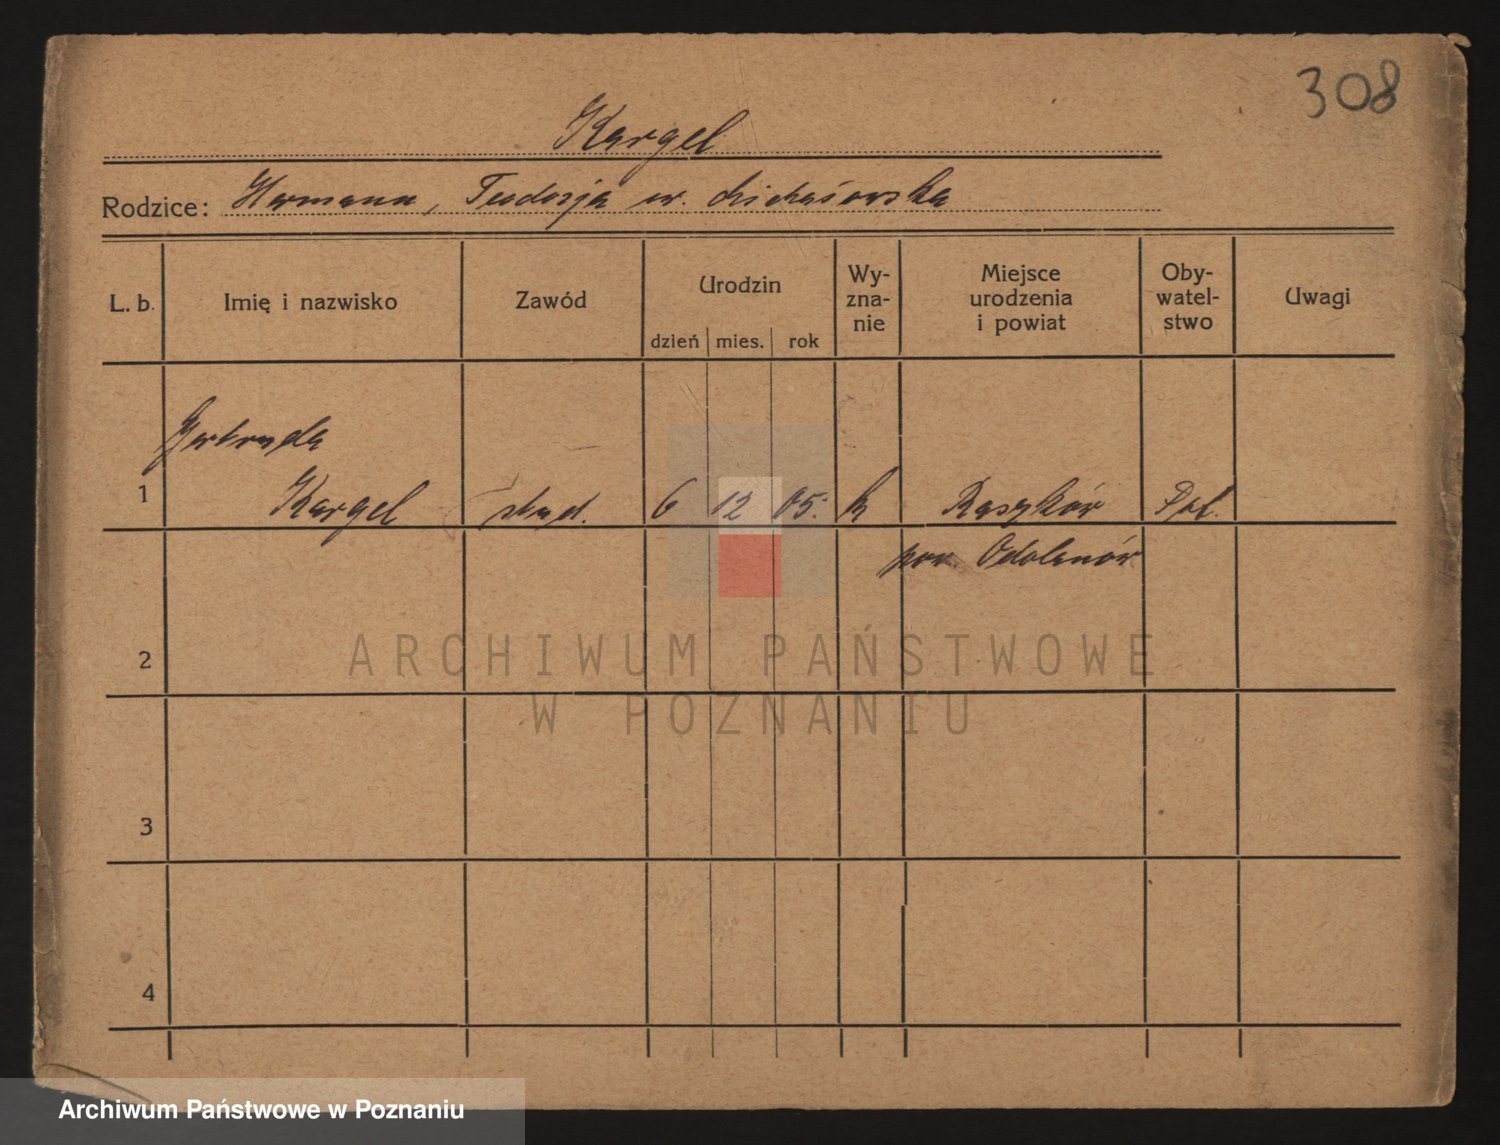 308
Kargel
Rodzice: Hermann, Teodozja ur.
L. b. Imię i nazwisko Zawód Urodzin Wy-zna-nie Miejsce urodzenia i powiat Oby-watel-stwo Uwagi
dzień mies. rok
Gertruda
1 Kargel stud. 6 12 05. k Raszków Pol.
pow. Odolanów
2
ARCHIWUM PAŃSTWOWE
W POZNANIU
3
4
Archiwum Państwowe w Poznaniu